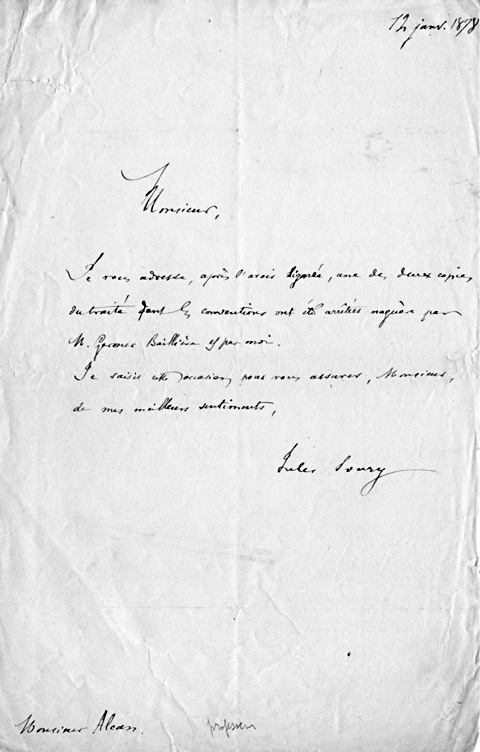 12 janv. 1878
Monsieur,
Je vous adresse, après l'avoir signée, une des deux copies
du traité dont les conventions ont été arrêtées naguère par
M. Germer Baillière et par moi.
Je saisis cette occasion, pour vous assurer, Monsieur,
de mes meilleurs sentiments,
Jules Soury
Monsieur Alcan.
professeur